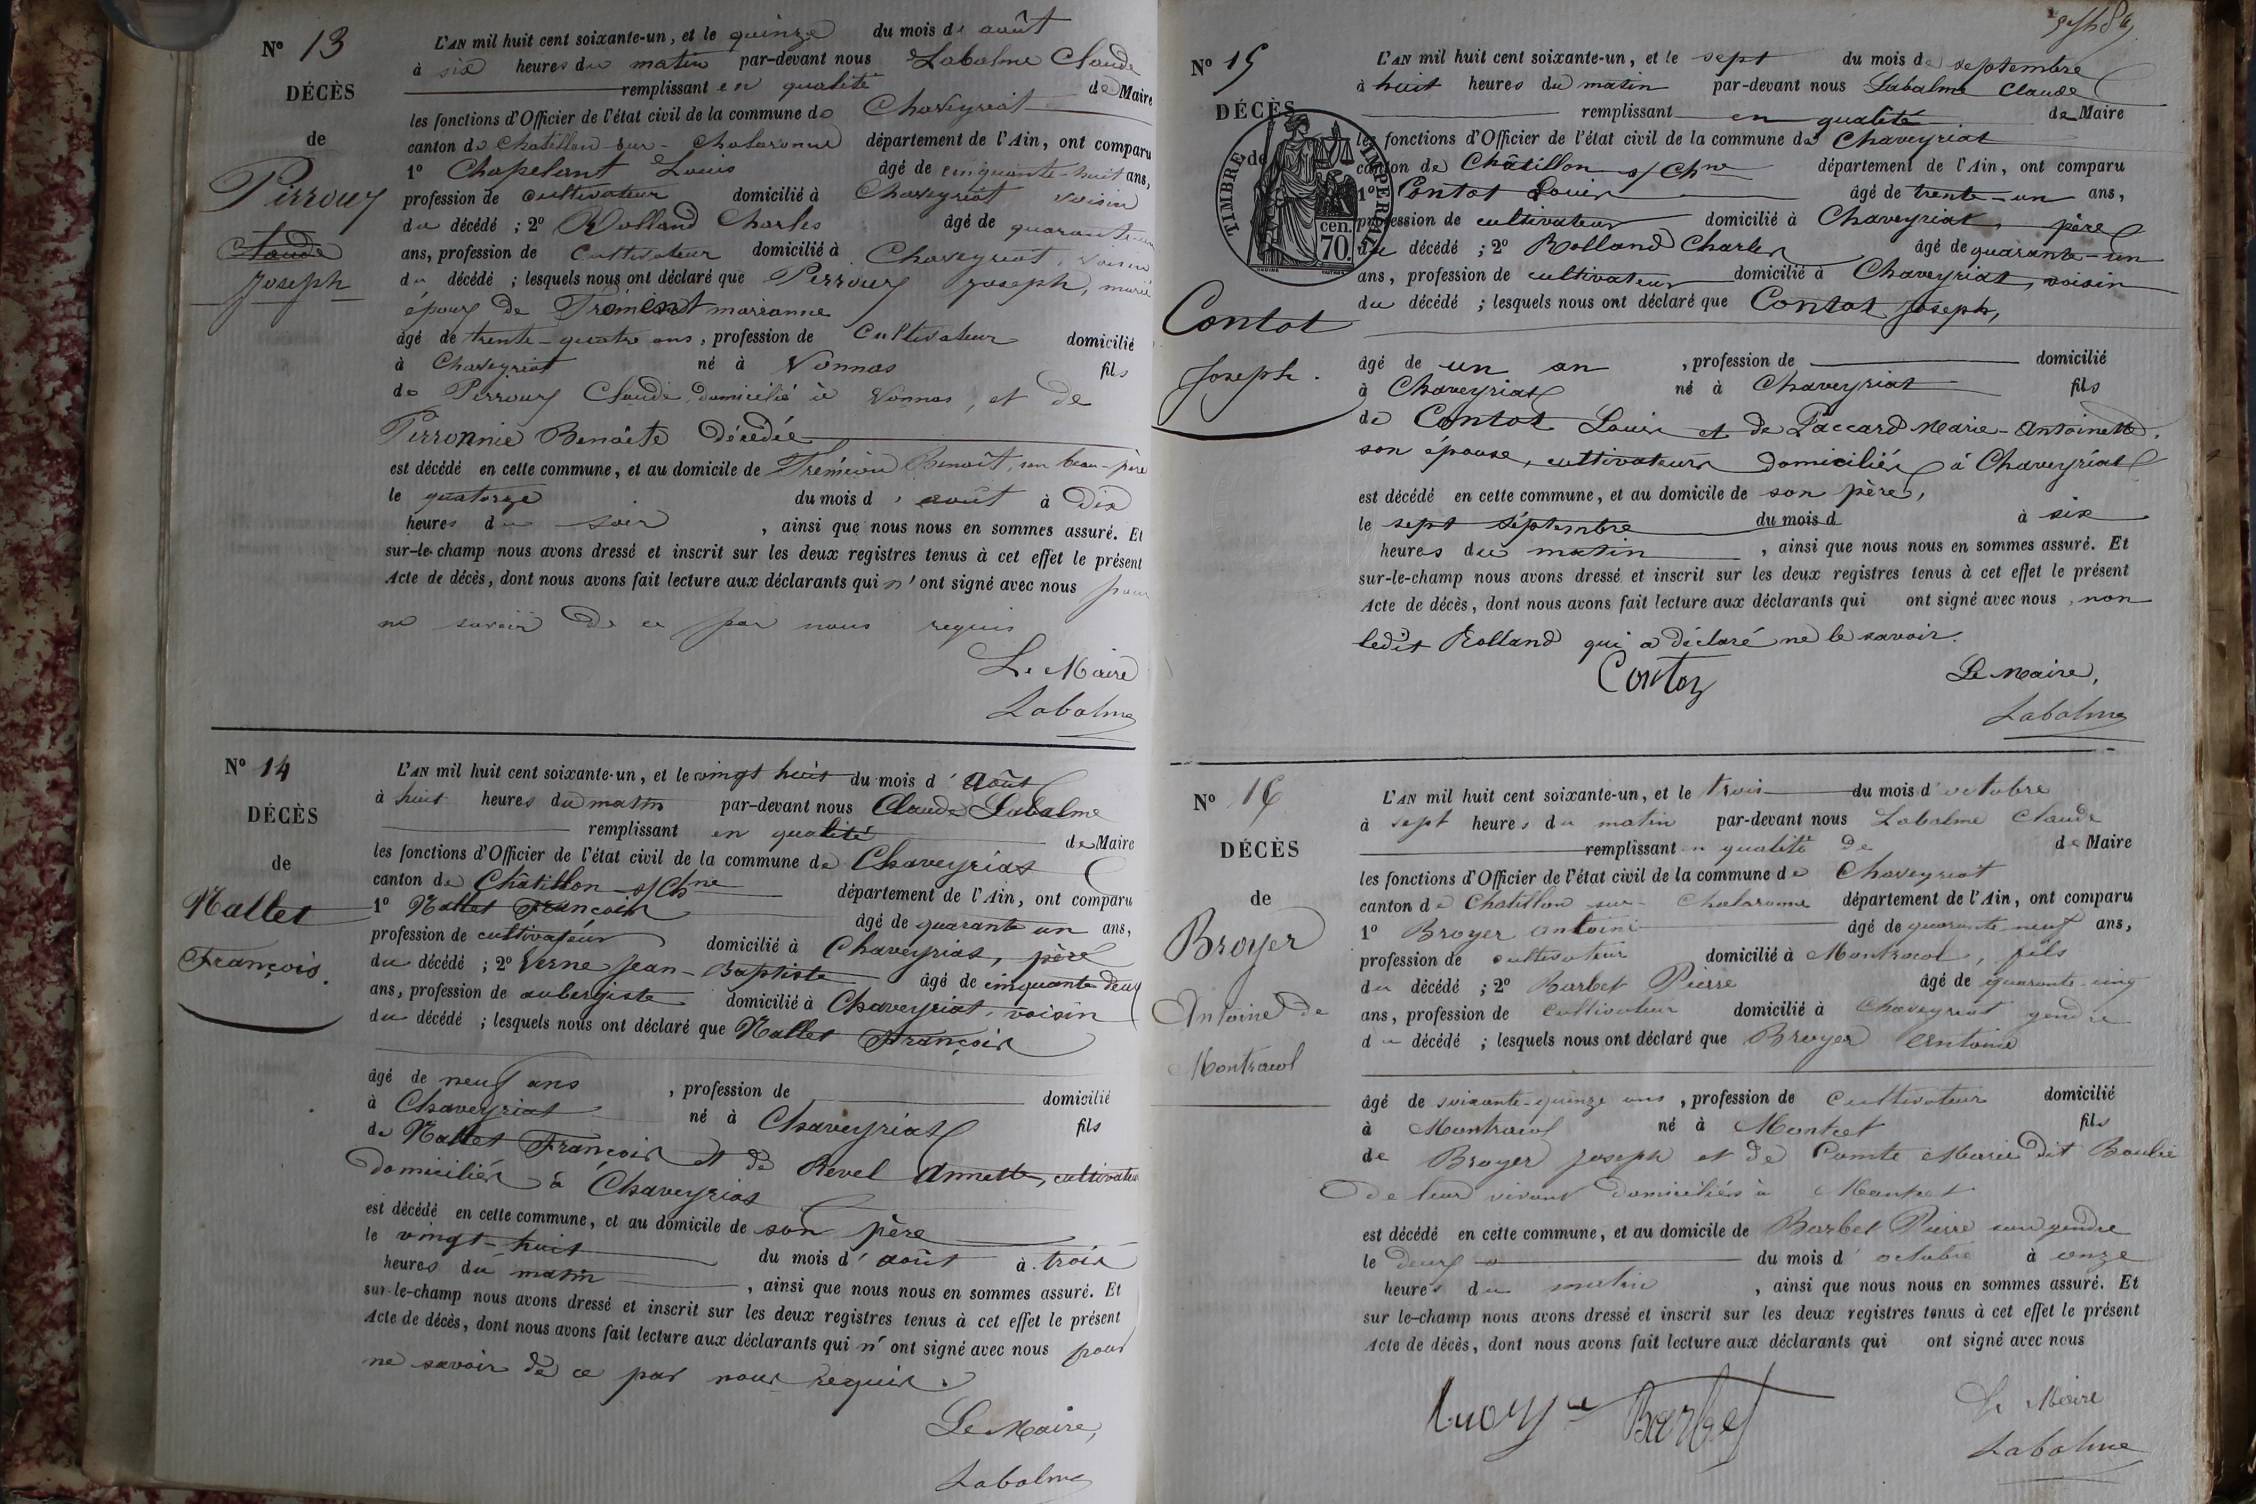 N° 13
DÉCÈS
de
Perroux
Claude
Joseph
L'AN mil huit cent soixante-un, et le quinze du mois de août
à six heures du matin par-devant nous Labalme Claude
remplissant en qualité de Maire
les fonctions d'Officier de l'état civil de la commune de Chaveyriat
canton de Chatillon-sur-Chalaronne département de l'Ain, ont comparu
1° Chapelant Louis âgé de cinquante-huit ans,
profession de cultivateur domicilié à Chaveyriat voisin
du décédé ; 2° Rolland Charles âgé de quarante-un
ans, profession de cultivateur domicilié à Chaveyriat, voisin
du décédé ; lesquels nous ont déclaré que Perroux Joseph, marié
époux de marianne
âgé de trente-quatre ans, profession de cultivateur domicilié
à Chaveyriat né à Vonnas fils
de Perroux Claude, domicilié à Vonnas, et de
Perronnie Benoîte décédée
est décédé en cette commune, et au domicile de Benoît, son beau-père
le quatorze du mois d'août à dix
heures du soir, ainsi que nous nous en sommes assuré. Et
sur-le-champ nous avons dressé et inscrit sur les deux registres tenus à cet effet le présent
Acte de décès, dont nous avons fait lecture aux déclarants qui n'ont signé avec nous pour
ne savoir de ce par nous requis
Le Maire
Labalme
N° 14
DÉCÈS
de
Nallet
François.
L'AN mil huit cent soixante-un, et le vingt huit du mois d'Août
à huit heures du matin par-devant nous Claude Labalme
remplissant en qualité de Maire
les fonctions d'Officier de l'état civil de la commune de Chaveyriat
canton de Châtillon s/Chne département de l'Ain, ont comparu
1° Nallet François âgé de quarante un ans,
profession de cultivateur domicilié à Chaveyriat, père
du décédé ; 2° Verne Jean-Baptiste âgé de cinquante deux
ans, profession de aubergiste domicilié à Chaveyriat, voisin
du décédé ; lesquels nous ont déclaré que Nallet François
âgé de neuf ans, profession de domicilié
à Chaveyriat né à Chaveyriat fils
de Nallet François et de Revel Annette, cultivateurs
domiciliés à Chaveyriat
est décédé en cette commune, et au domicile de son père
le vingt-huit du mois d'août à trois
heures du matin, ainsi que nous nous en sommes assuré. Et
sur-le-champ nous avons dressé et inscrit sur les deux registres tenus à cet effet le présent
Acte de décès, dont nous avons fait lecture aux déclarants qui n'ont signé avec nous pour
ne savoir de ce par nous requis.
Le Maire,
Labalme
N° 15
DÉCÈS
de
TIMBRE IMPERIAL
cen.
70.
Contot
Joseph.
L'AN mil huit cent soixante-un, et le sept du mois de septembre
à huit heures du matin par-devant nous Labalme Claude
remplissant en qualité de Maire
les fonctions d'Officier de l'état civil de la commune de Chaveyriat
canton de Châtillon s/Chne département de l'Ain, ont comparu
1° Contot Louis âgé de trente-un ans,
profession de cultivateur domicilié à Chaveyriat, père
du décédé ; 2° Rolland Charles âgé de quarante-un
ans, profession de cultivateur domicilié à Chaveyriat, voisin
du décédé ; lesquels nous ont déclaré que Contot Joseph,
âgé de un an, profession de domicilié
à Chaveyriat né à Chaveyriat fils
de Contot Louis et de Paccard Marie-Antoinette.
son épouse, cultivateurs domiciliés à Chaveyriat
est décédé en cette commune, et au domicile de son père,
le sept septembre du mois d à six
heures du matin, ainsi que nous nous en sommes assuré. Et
sur-le-champ nous avons dressé et inscrit sur les deux registres tenus à cet effet le présent
Acte de décès, dont nous avons fait lecture aux déclarants qui ont signé avec nous, non
ledit Rolland qui a déclaré ne le savoir.
Contoz
Le Maire,
Labalme
N° 16
DÉCÈS
de
Broyer
Antoine de
Montracol
L'AN mil huit cent soixante-un, et le trois du mois d'octobre
à sept heures du matin par-devant nous Labalme Claude
remplissant en qualité de de Maire
les fonctions d'Officier de l'état civil de la commune de Chaveyriat
canton de Chatillon-sur-Chalaronne département de l'Ain, ont comparu
1° Broyer Antoine âgé de quarante neuf ans,
profession de cultivateur domicilié à Montracol, fils
du décédé ; 2° Barbet Pierre âgé de quarante-cinq
ans, profession de cultivateur domicilié à Chaveyriat gendre
du décédé ; lesquels nous ont déclaré que Broyer Antoine
âgé de soixante-quinze ans, profession de cultivateur domicilié
à Montracol né à Montcet fils
de Broyer Joseph et de Comte Marie dit
de leur vivant domiciliés à
est décédé en cette commune, et au domicile de Barbet Pierre son gendre
le deux du mois d'octobre à onze
heures du matin, ainsi que nous nous en sommes assuré. Et
sur le-champ nous avons dressé et inscrit sur les deux registres tenus à cet effet le présent
Acte de décès, dont nous avons fait lecture aux déclarants qui ont signé avec nous
Barbet
Le Maire
Labalme